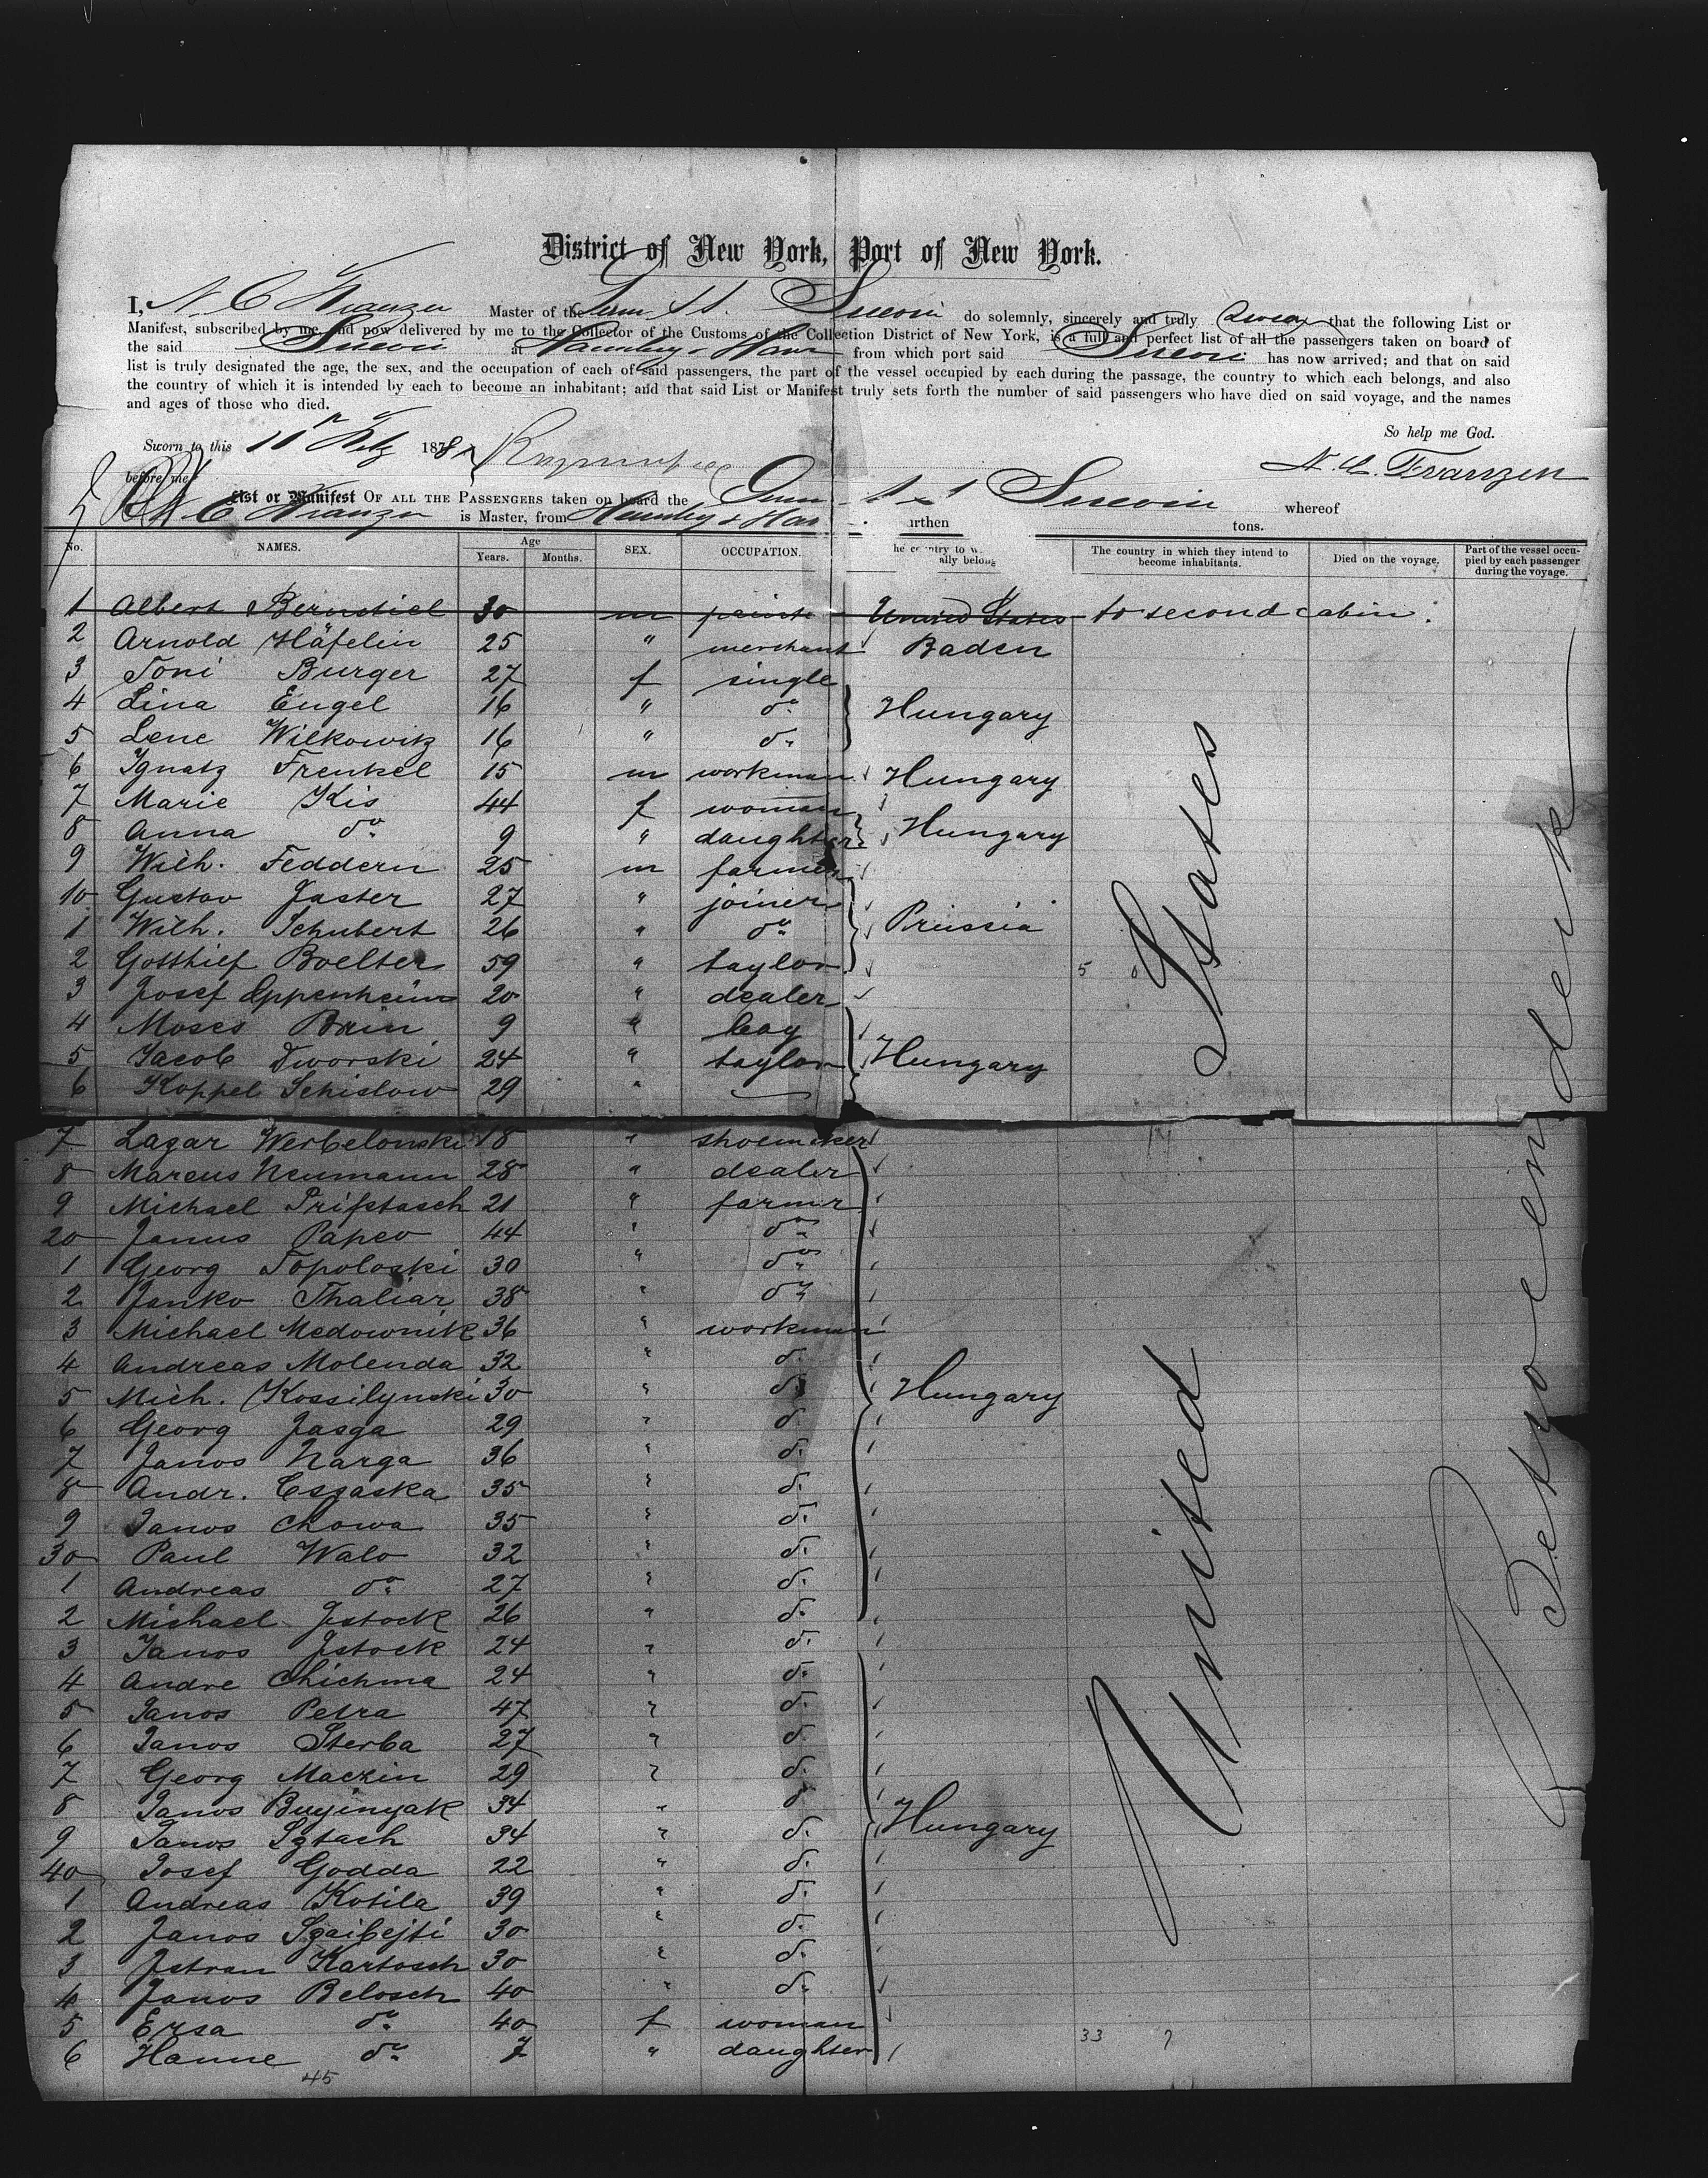 District of New York, Port of New York.
I, N. C. Franzen Master of the Germ. S. S. Suevia do solemnly, sincerely and truly swear that the following List or
Manifest, subscribed by me, and now delivered by me to the Collector of the Customs of the Collection District of New York, is a full and perfect list of all the passengers taken on board of
the said Suevia at Hamburg & Havre from which port said Suevia has now arrived; and that on said
list is truly designated the age, the sex, and the occupation of each of said passengers, the part of the vessel occupied by each during the passage, the country to which each belongs, and also
the country of which it is intended by each to become an inhabitant; and that said List or Manifest truly sets forth the number of said passengers who have died on said voyage, and the names
and ages of those who died.
So help me God.
Sworn to this 187
N. C. Franzen
before me
List or Manifest OF ALL THE PASSENGERS taken on board the Germ. Suevia whereof
N C Franzen is Master, from Hamburg & Hav urthen tons.
No. NAMES. Age Years. Months. SEX. OCCUPATION. he country to w ally belong The country in which they intend to become inhabitants. Died on the voyage. Part of the vessel occupied by each passenger during the voyage.
1 Albert Bernstiel 30 m United States to second cabin.
2 Arnold Häfelin 25 " merchant Baden
3 Toni Burger 27 f single
4 Lina Engel 16 " do. Hungary
5 Lene Wilkowitz 16 " do.
6 Ignatz Frenkel 15 m workman Hungary
7 Marie Kis 44 f woman
8 Anna do. 9 " daughter Hungary
9 Wilh. Feddern 25 m farmer
10 Gustav Jaster 27 " joiner
1 Wilh. Schubert 26 " do. Prussia
2 Gotthief Boelter 59 " taylor
3 Josef Oppenheim 20 " dealer
4 Moses Brin 9 " boy
5 Jacob Dworski 24 " taylor Hungary
6 Koppel Schislow 29 "
7 Lazar Werbelonski 18 " shoemaker
8 Marcus Neumann 28 " dealer
9 Michael Prifstasch 21 " farmer
20 Janus Papco 44 " do.
1 Georg Topoloski 30 " do.
2 Janko Thaliar 38 " do.
3 Michael Medownik 36 " workman
4 Andreas Molenda 32 " do.
5 Mich. Kossilynski 30 " do. Hungary
6 Georg Jasga 29 " do.
7 Janos Narga 36 " do.
8 Andr. Csgaska 35 " do.
9 Janos Chowa 35 " do.
30 Paul Walo 32 " do.
1 Andreas do. 27 " do.
2 Michael Jstock 26 " do.
3 Janos Jstock 24 " do.
4 Andre Chichma 24 " do.
5 Janos Petra 47 " do.
6 Janos Sterba 27 " do.
7 Georg Maczin 29 " do.
8 Janos Buyinyak 34 " do.
9 Janos Sztach 34 " do. Hungary
40 Josef Godda 22 " do.
1 Andreas Kotila 39 " do.
2 Janos Szaibejti 30 " do.
3 Jstvan Kartosch 30 " do.
4 Janos Belosch 40 " do.
5 Ersa do. 40 f woman
6 Hanne do. 7 " daughter
45
United States
33